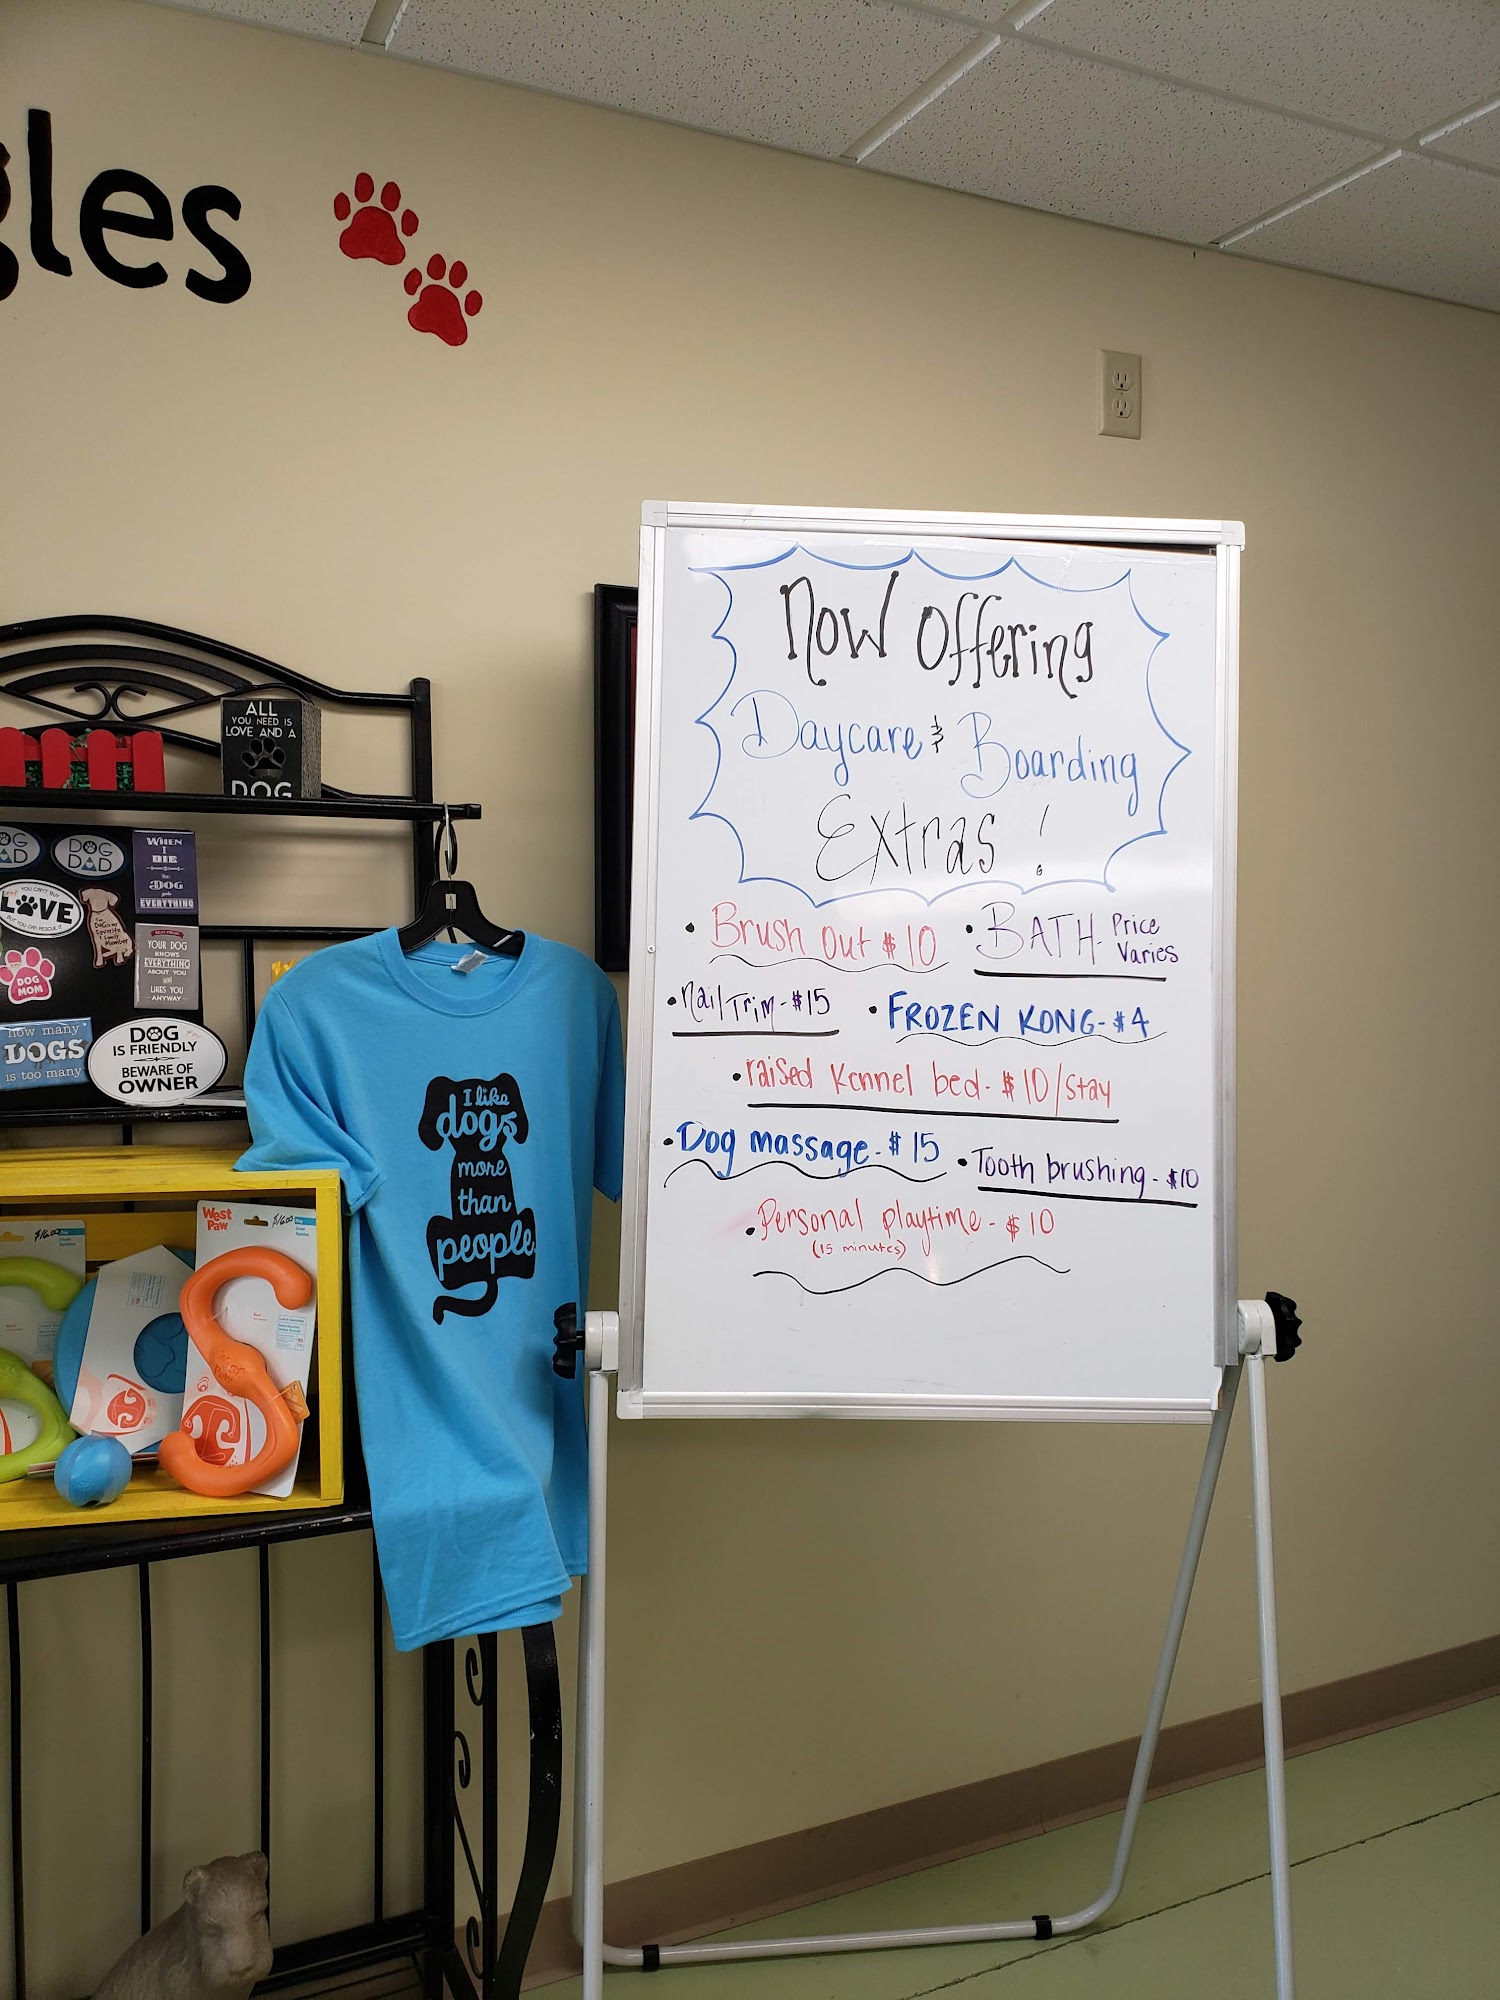 gles
ALL
YOU NEED IS
LOVE AND A
DOG
DOG
DAD
DOG
DAD
WHEN
I
DIE
THE
DOG
gets
EVERYTHING
YOU CAN'T BUY
LOVE
BUT YOU CAN RESCUE IT
The
DOG is my
Favorite
Family
Member
DOG
MOM
YOUR DOG
KNOWS
EVERYTHING
ABOUT YOU
LIKES YOU
ANYWAY
how many
DOGS
is too many
DOG
IS FRIENDLY
BEWARE OF
OWNER
$16.00
West
Paw
$16.00
I like
dogs
more
than
people.
Now Offering
Daycare & Boarding
Extras!
• Brush Out $10
• BATH - Price
Varies
• nail Trim - $15
• FROZEN KONG - $4
• raised Kennel bed - $10/stay
• Dog massage - $15
• Tooth brushing - $10
• Personal playtime - $10
(15 minutes)